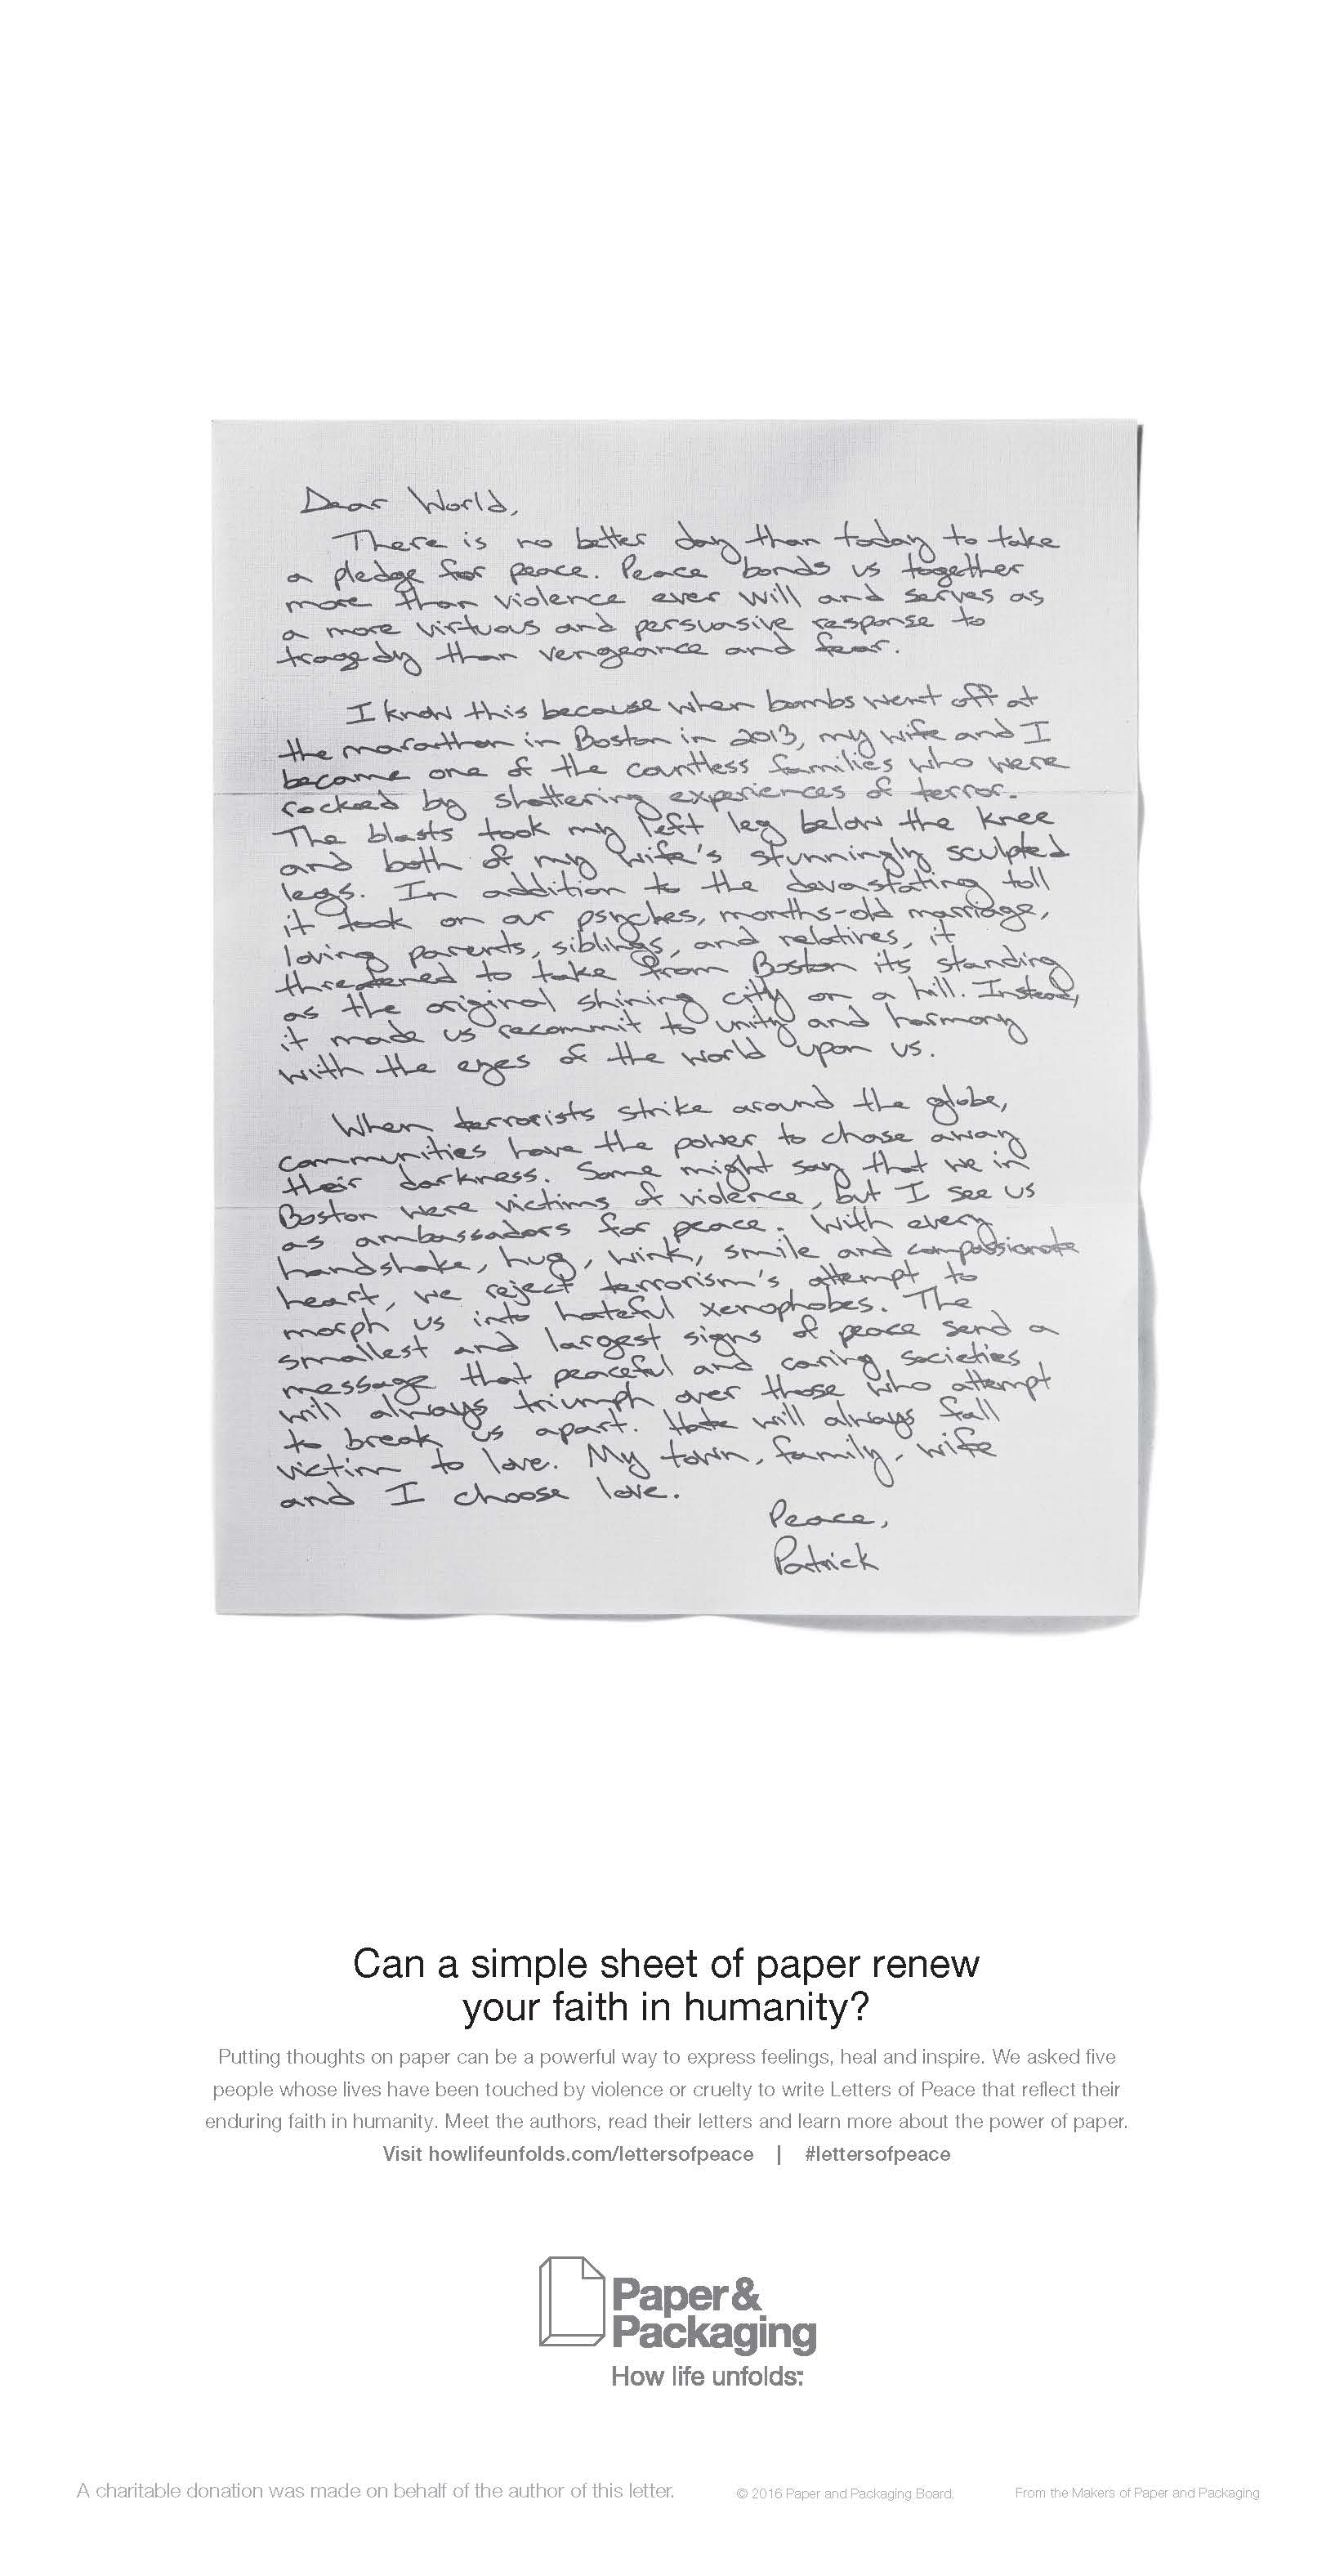 Dear World,
There is no better day than today to take
a pledge for peace. Peace bonds us together
more than violence ever will and serves as
a more virtuous and persuasive response to
tragedy than vengeance and fear.
I know this because when bombs went off at
the marathon in Boston in 2013, my wife and I
became one of the countless families who were
rocked by shattering experiences of terror.
The blasts took my left leg below the knee
and both of my wife's stunningly sculpted
legs. In addition to the devastating toll
it took on our psyches, months-old marriage,
loving parents, siblings, and relatives, it
threatened to take from Boston its standing
as the original shining city on a hill. Instead,
it made us recommit to unity and harmony
with the eyes of the world upon us.
When terrorists strike around the globe,
communities have the power to chase away
their darkness. Some might say that we in
Boston were victims of violence, but I see us
as ambassadors for peace. With every
handshake, hug, wink, smile and compassionate
heart, we reject terrorism's attempt to
morph us into hateful xenophobes. The
smallest and largest signs of peace send a
message that peaceful and caring societies
will always triumph over those who attempt
to break us apart. Hate will always fall
victim to love. My town, family, wife
and I choose love.
Peace,
Patrick
Can a simple sheet of paper renew
your faith in humanity?
Putting thoughts on paper can be a powerful way to express feelings, heal and inspire. We asked five
people whose lives have been touched by violence or cruelty to write Letters of Peace that reflect their
enduring faith in humanity. Meet the authors, read their letters and learn more about the power of paper.
Visit howlifeunfolds.com/lettersofpeace | #lettersofpeace
Paper&
Packaging
How life unfolds:
A charitable donation was made on behalf of the author of this letter. © 2016 Paper and Packaging Board. From the Makers of Paper and Packaging